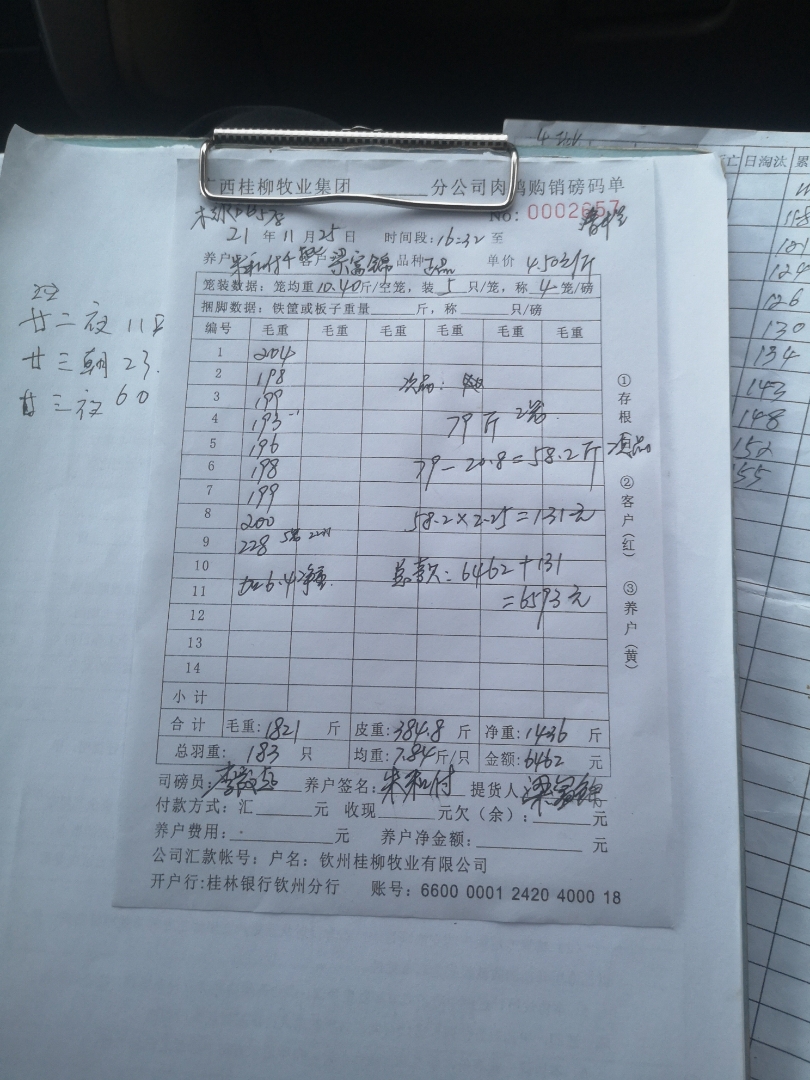 广西桂柳牧业集团______分公司肉鸭购销磅码单
No: 0002657
21 年 11 月 25 日 时间段: 16:32 至
养户 朱和付 客户 梁富锦 品种 正品 单价 4.50元/斤
笼装数据: 笼均重 10.40 斤/空笼, 装 5 只/笼, 称 4 笼/磅
捆脚数据: 铁筐或板子重量______斤, 称______只/磅
编号 毛重 毛重 毛重 毛重 毛重 毛重
1 204
2 198 次品:
3 199
4 193 79斤 2笼
5 196 79-20.8=58.2斤 次品
6 198
7 199
8 200 58.2×2.25=131元
9 228
10
11 加6.4净重 总款: 6462+131
=6593元
12
13
14
小计
合计 毛重: 1821 斤 皮重: 384.8 斤 净重: 1436 斤
总羽重: 183 只 均重: 7.84 斤/只 金额: 6462 元
司磅员: 养户签名: 朱和付 提货人: 梁富锦
付款方式: 汇______元 收现______元欠(余):______元
养户费用:______元 养户净金额:______元
公司汇款帐号: 户名: 钦州桂柳牧业有限公司
开户行:桂林银行钦州分行 账号: 6600 0001 2420 4000 18
①存根 ②客户(红) ③养户(黄)
廿二夜 118
廿三朝 23.
廿三夜 60
亡 日淘汰 累
126
130
134
143
148
152
155